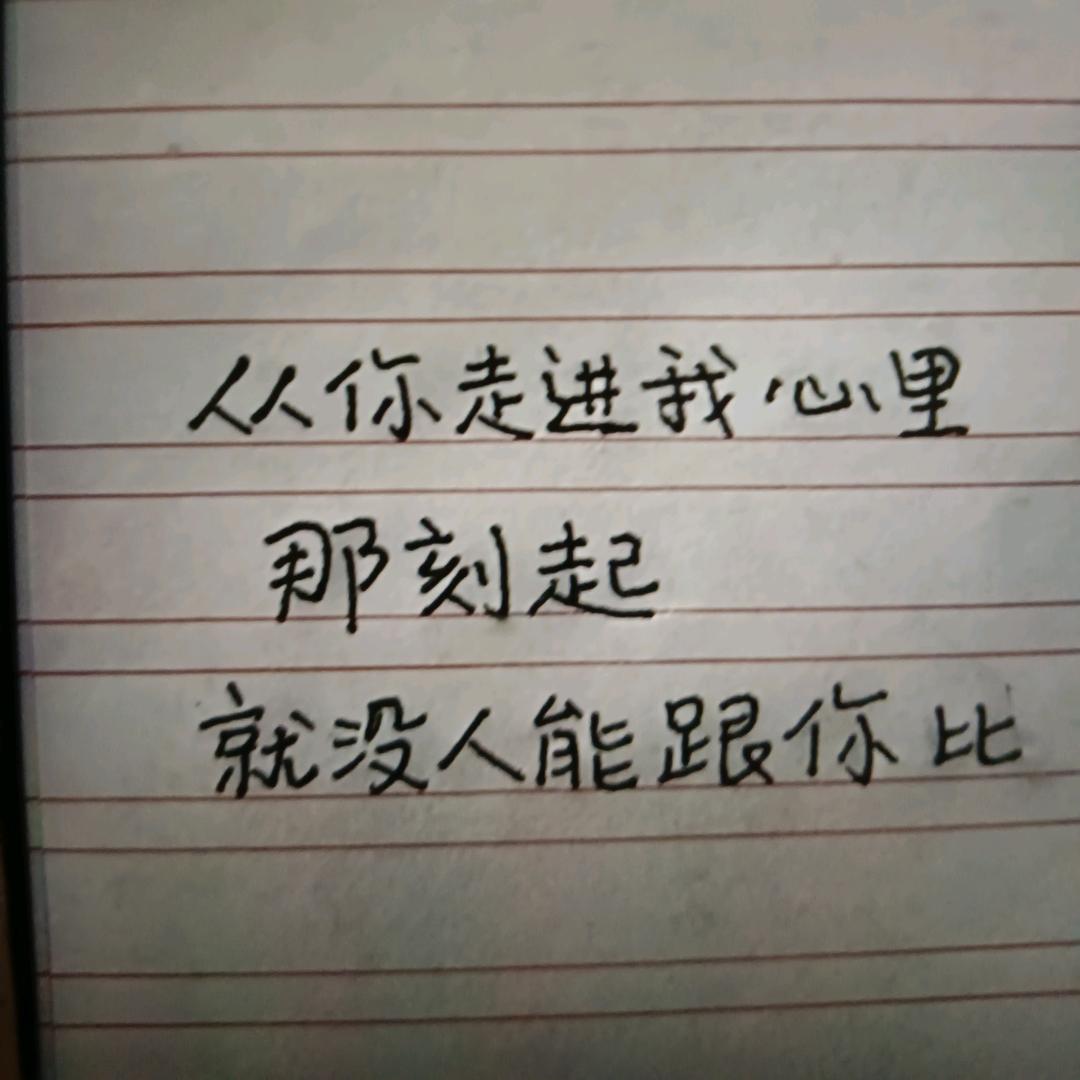 从你走进我心里
那刻起
就没人能跟你比